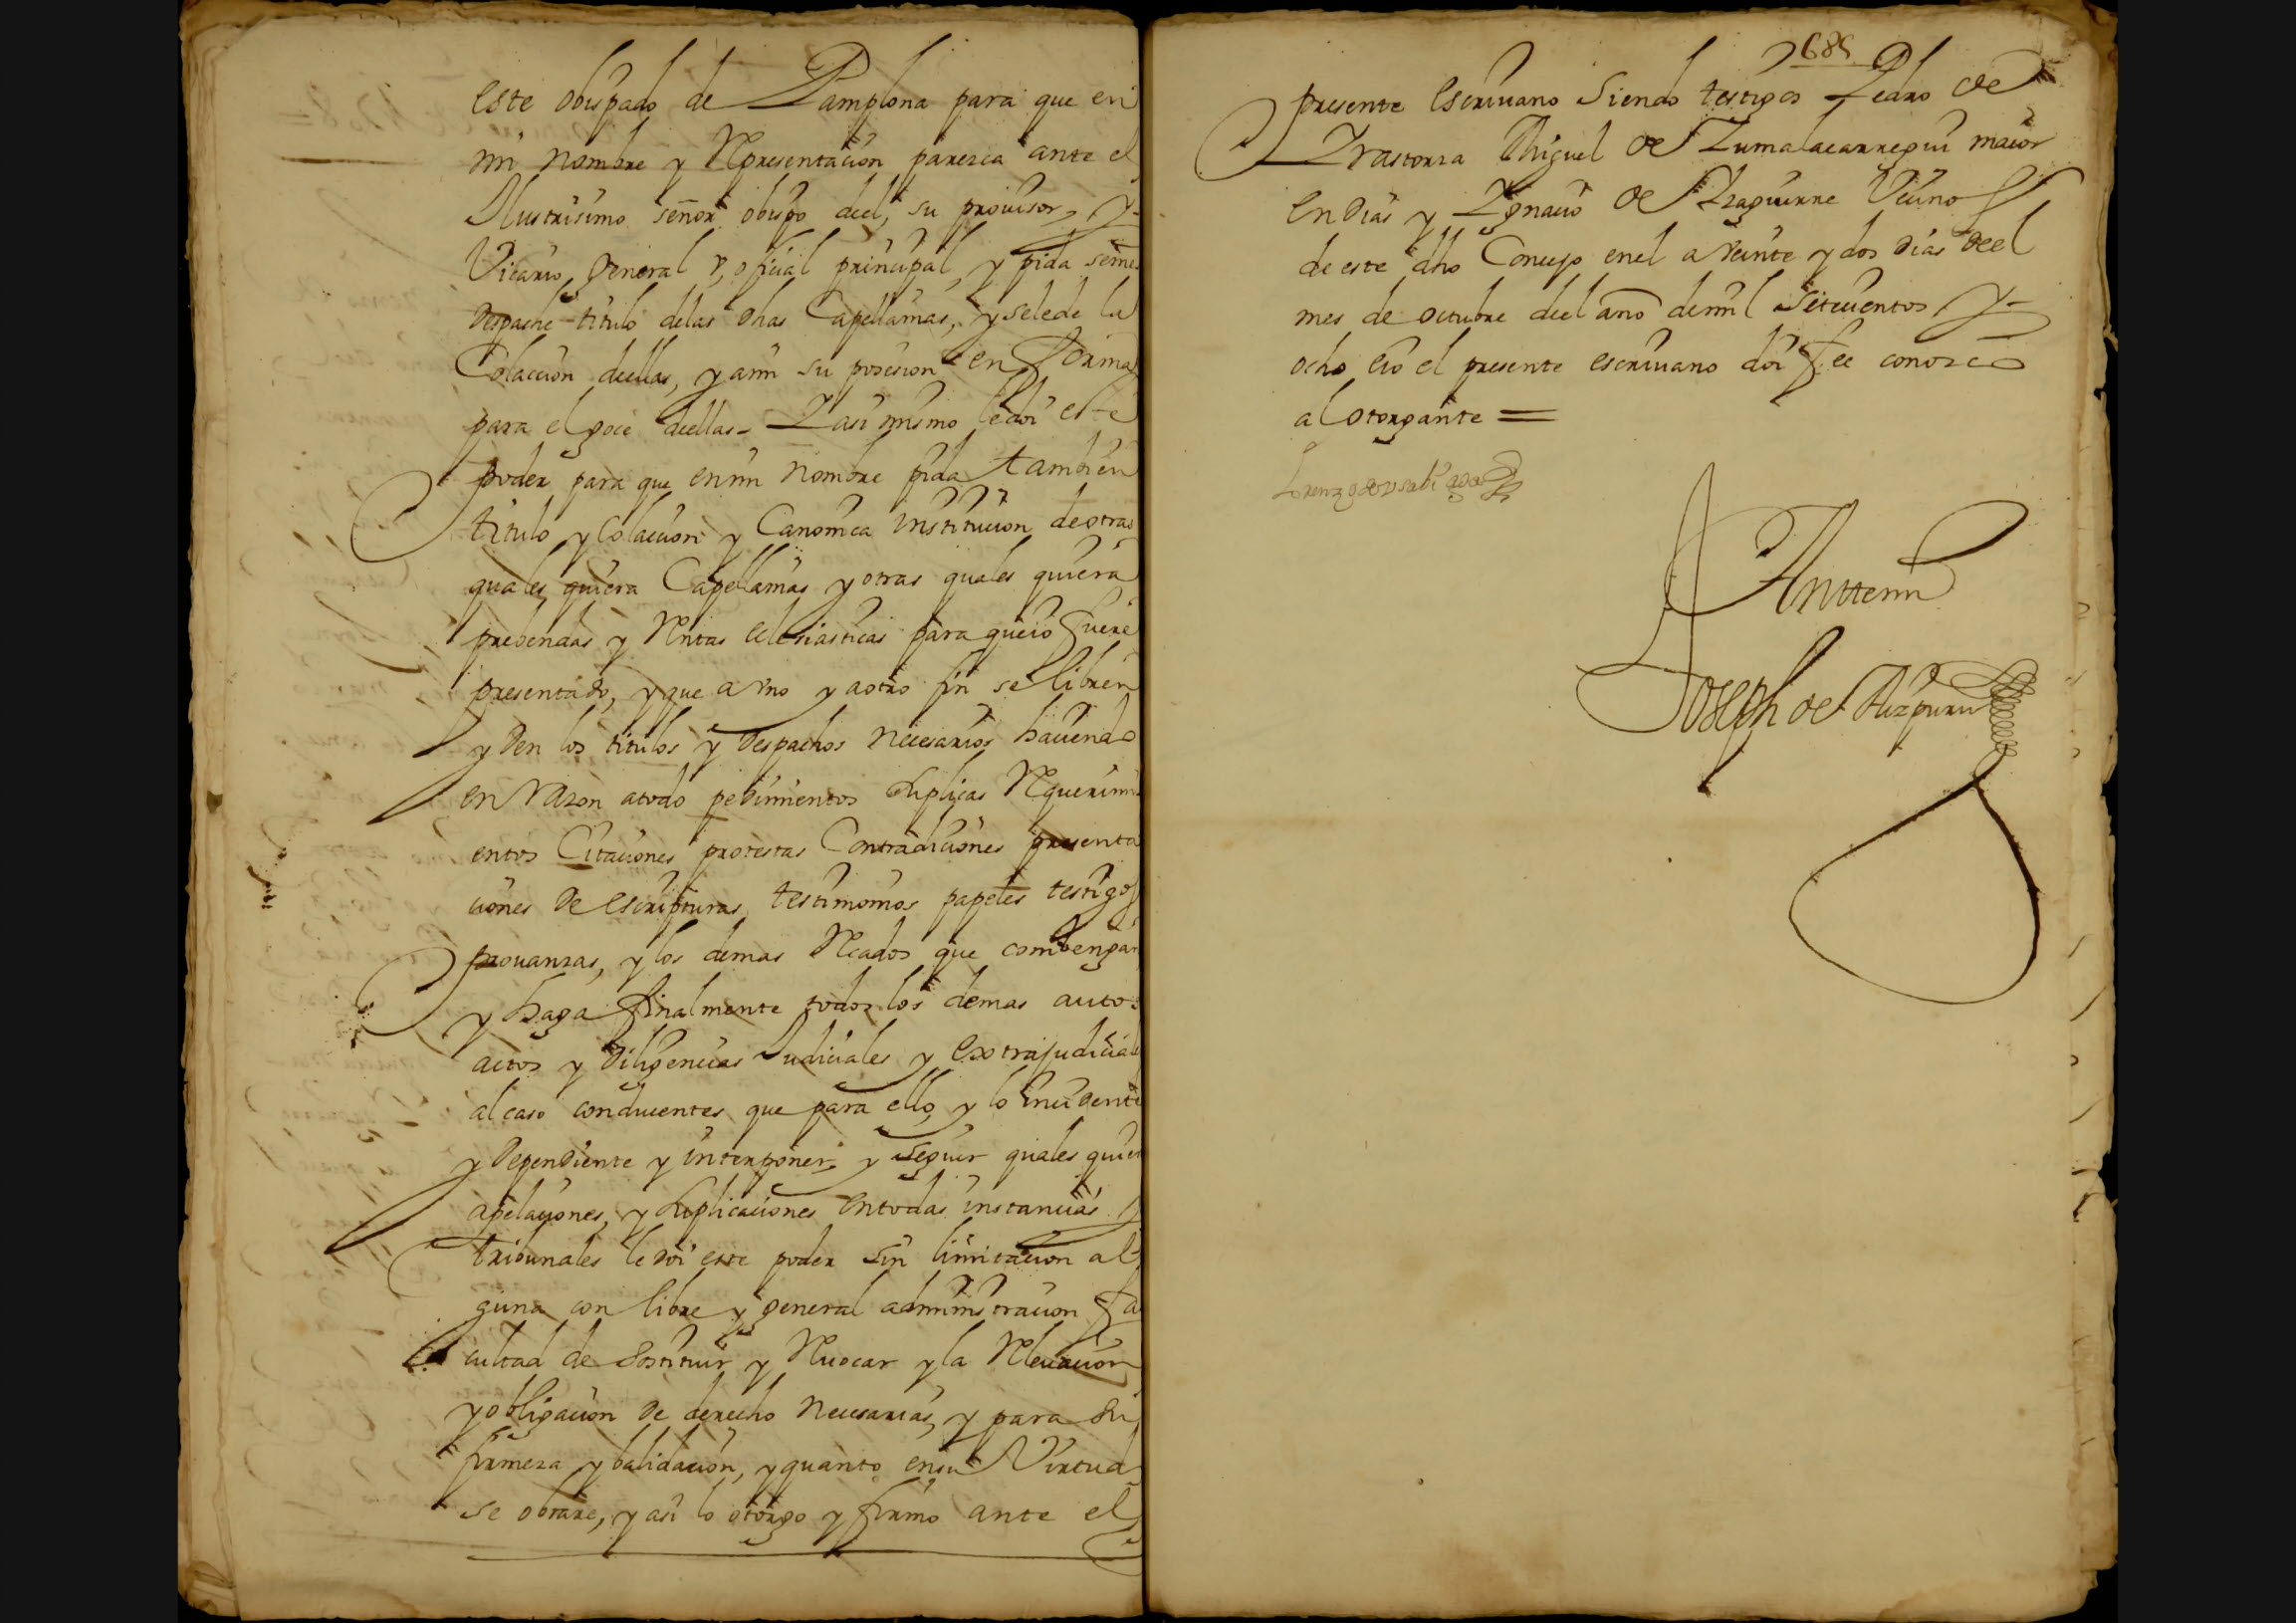 este obispado de Pamplona para que en
mi nombre y Representacion paresca ante el
Illustrisimo señor obispo deel, su prouisor, y
Vicario, General, o ofiçial prinçipal, y pida seme
despache titulo delas dhas Capellanias, y sele de la
Colaccion deellas, y ami su posesion en forma
para el goce deellas = Y asi mismo le doi este
poder para que enmi nombre pida tambien
titulo y Colacion y Canonica institucion de otras
quales quiera Capellanias y otras quales quiera
prebendas y Rentas eclesiasticas para que io fuere
presentado, y que a vno y a otro fin se libren
y den los titulos y despachos necesarios haciendo
en razon atodo pedimientos suplicas Requerimi
entos Citaciones protestas Contradiciones presenta
ciones de escripturas, testimonios papeles testigos
prouanzas, y los demas Recados que combengan
y haga finalmente todos los demas autos
actos y diligencias Judiciales y extrajudicial
al caso conducentes que para ello, y lo incidente
y dependiente y interponer y seguir quales quier
apelaciones, y suplicaciones entodas instancias y
tribunales le doi este poder sin limitacion al
guna con libre y general administracion fa
cultad de sostituir y Reuocar y la Releuacion
y obligacion de derecho necesarias, y para su
firmeza y balidacion, y quanto ensu Virtud
se obrare, y asi lo otorgo y firmo ante el
685
presente escriuano siendo testigos Pedro de
Yrastorza Miguel de Zumalacarregui maior
en dias y Ygnacio de Yzaguirre Vecinos
de este dho Concejo enel a veinte y dos dias deel
mes de octubre deel año demil setecientos y
ocho eio el presente escriuano doi fee conozco
al otorgante =
Lorenzo de
Anttemi
Joseph de Aizpuru